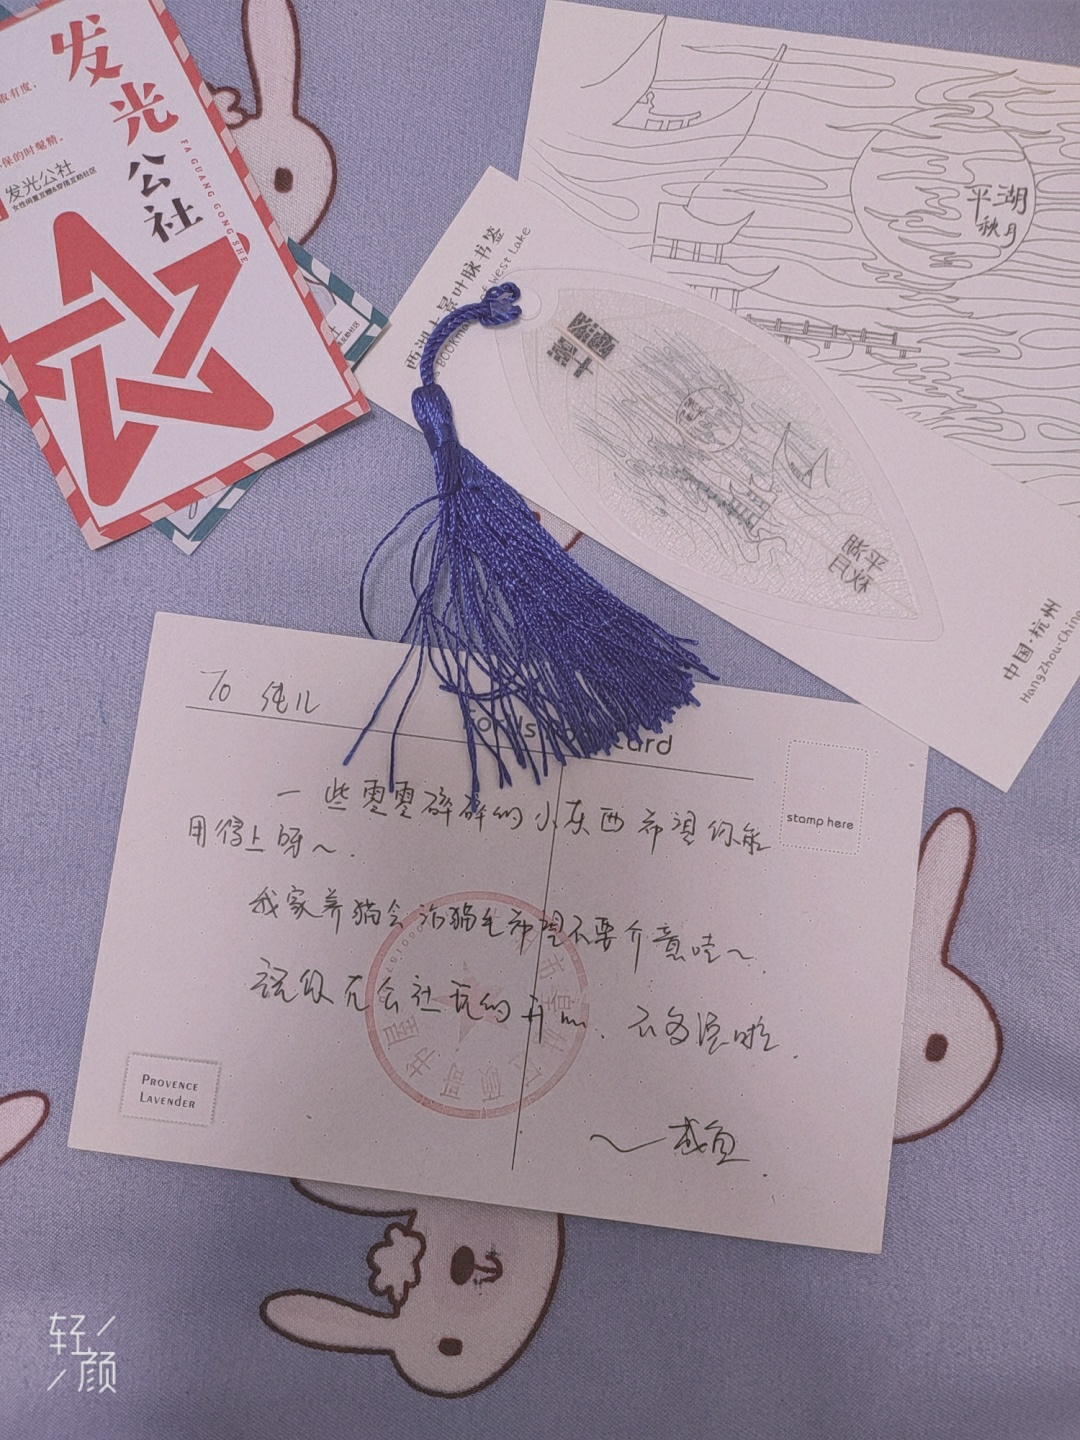 发光公社
FA GUANG GONG SHE
取有度.
保的时髦精.
发光公社
女性闲置互赠&穿搭互助社区
平湖
秋月
西湖十景叶脉书签
BOOKmark of West Lake
平湖
秋月
中国·杭州
HangZhou·China
To 纯儿
card
stamp here
一些零零碎碎的小东西希望你能
用得上呀~.
我家养猫会沾猫毛希望不要介意哇~.
祝你在公社玩的开心. 不客气啦.
PROVENCE
LAVENDER
轻颜